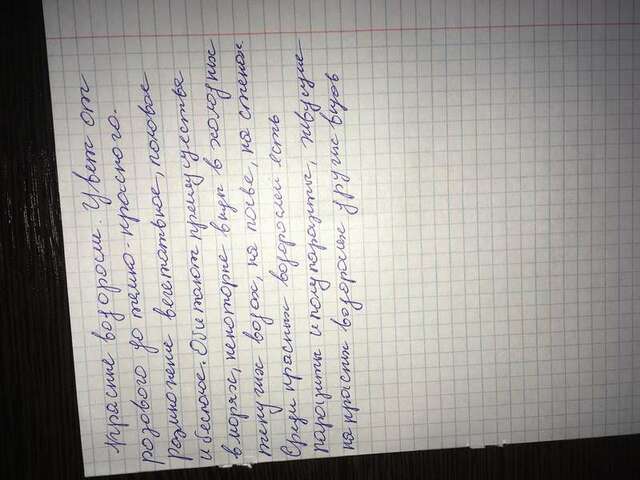 Красные водоросли. Цвет от
розового до темно-красного.
Размножение вегетативное, половое
и бесполое. Обитают преимущества
в морях, некоторые виды в холодных
текучих водах, на почве, на стенах
Среди красных водорослей есть
паразиты и полупаразиты, живущие
на красных водорослях других видов